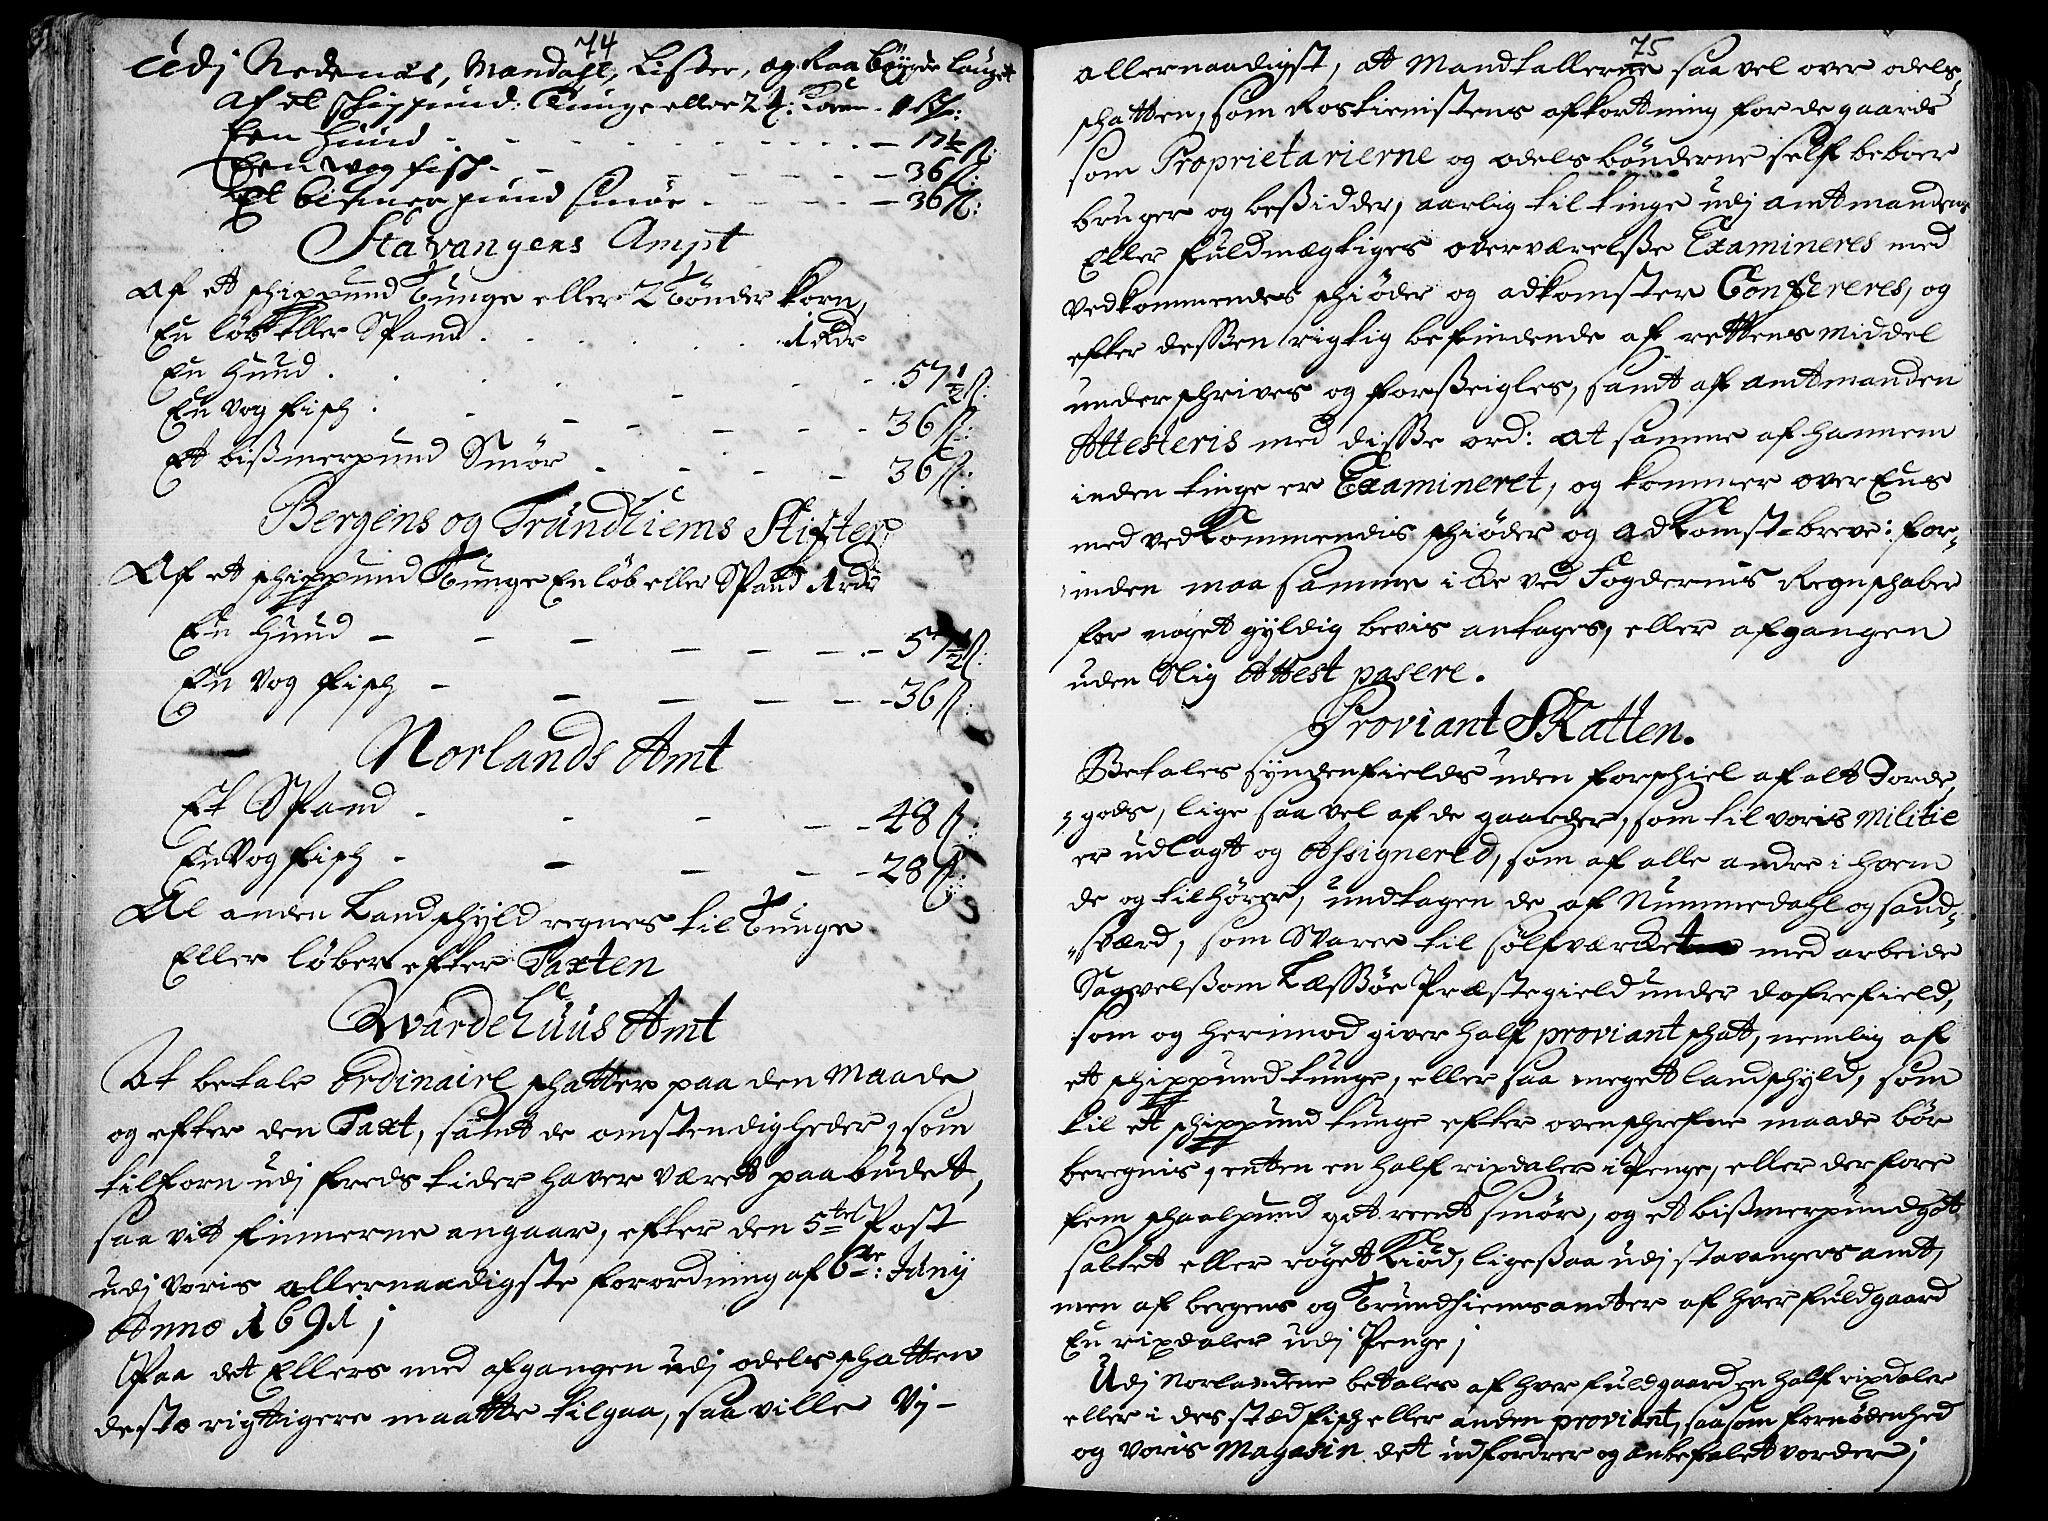 74
Udj Nedenes, Mandahl, Lister, og Raabøyde lauget
Af et schippund: Tunge eller 2 t: Korn - 1 Rdr:
Een Huud - 17½ ß:
Een vog fisch - 36 ß:
Et bismerpund smör - 36 ß:
Stavangers Ampt
Af et schippund Tunge eller 2 tönder korn,
En löb eller Spand 1 Rdr
En Huud 57½ ß:
En vog fisch 36 ß:
Et bißmerpund Smör 36 ß:
Bergens og Trundhiems Stifter
Af et schippund Tunge En löb eller Spand 1 rdr
En Huud 57½ ß:
En vog fisch 36 ß:
Norlands Amt
Et Spand 48 ß:
En vog fisch 28 ß:
Al anden Landschyld regnes til Tunge
Eller löber efter Taxten
Wardehuus Amt
At betale Ordinaire schatter paa den maade
og efter den Taxt, samt de omstendigheder, som
tilforn udj freds tider haver været paabudet,
saa vit finnerne angaar, efter den 5te Post
udj voris allernaadigste forordning af 6te: Junij
Anno 1691;
Paa det Ellers med afgangen udj odelsschatten
desto rigttigere maatte tilgaa, saa ville Vj-
75
allernaadigst, at Mandtallerne saa vel over odels-
schatten, som Rostienistens afkortning for de gaarde
som Proprietarierne og odelsbönderne self beboer
bruger og beßidder, aarlig til tinge udj amtmandens
Eller fuldmægtiges overværelße Examineres med
vedkommendes schiöder og adkomster Confereres, og
efter dessen rigtig befindende af rettens middel
underschrives og forßeigles, samt af amtmanden
Attesteris med disse ord: at samme af hannem
inden tinge er Examineret, og kommer over Eens
med vedkommendis schiöder og adkomst-breve: for-
inden maa samme icke ved Fogdernis Regnschaber
for noget gyldig bevis antages, eller afgangen
uden slig Attest pasere.
Proviant Skatten.
Betales syndenfields uden forschiel af alt Jorde,
gods, lige saa vel af de gaarder, som til voris militie
er udlagt og Assignered, som af alle andre i hvem
de og tilhörer, undtagen de af Nummedahl og sand-
sverd, som svarer til sölfværcket med arbeide
Saavelßom Læssöe Præstegield under dofrefield,
som og herimod giver half proviant schat, nemlig af
et schippund tunge, eller saa meget landschyld, som
til et schippund tunge efter ovenschrefne maade bör
beregnis, enten en half rixdaler i Penge, eller derfore
fem schaalpund got reent smör, og et bißmerpund got
saltet eller röget Kiöd, ligeßaa udj stavangers amt,
men af bergens og Trundhiems amter af hver fuld gaard
En rixdaler udj Penge;
Udj Norlandene betales af hver fuldgaard en half rixdaler
eller i des sted fisch eller anden proviant, saasom fornödenhed
og voris Magasin det udfordrer og anbefalet vorder;